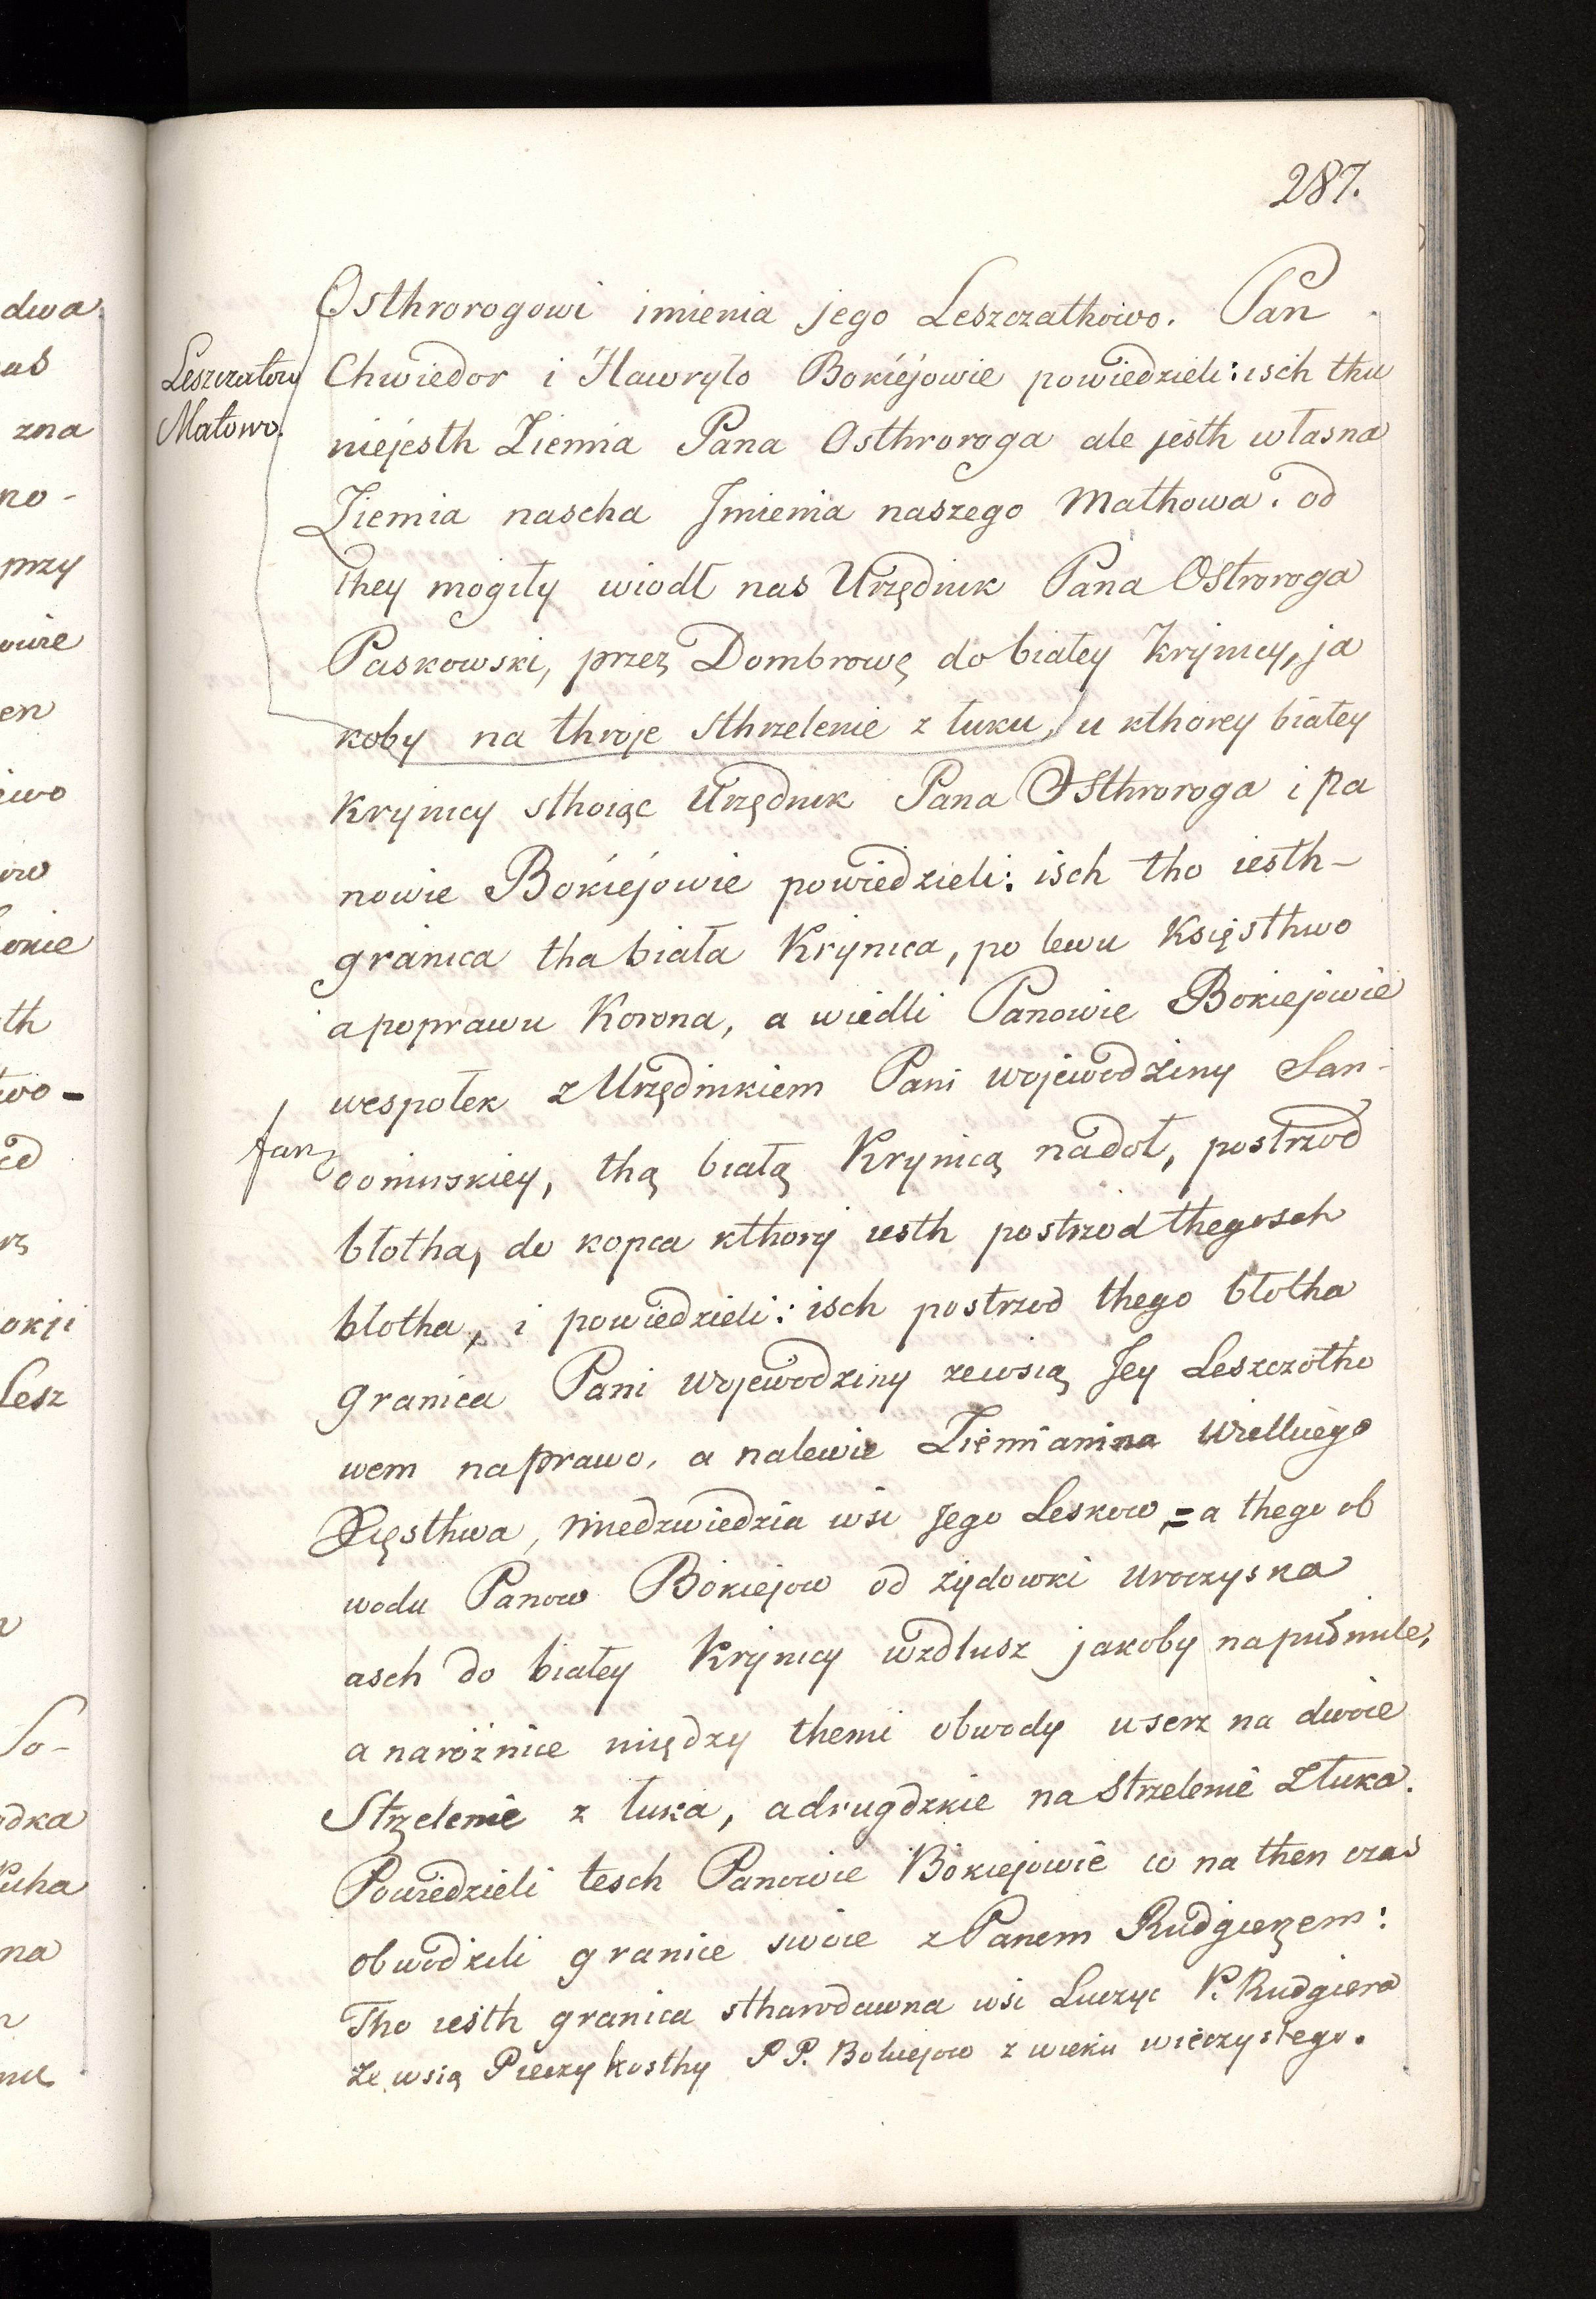 287.
Osthrorogowi imienia jego Leszczathowo. Pan
Leszczatow
Matowo.
Chwiedor i Hawryło Bokiéjowie powiedzieli: isch thu
niejesth Ziemia Pana Osthroroga ale jesth własna
Ziemia nascha Jmienia naszego Mathowa. od
they mogiły wiodł nas Urzędnik Pana Ostroroga
Paskowski, przez Dombrowę do białey Krynicy, ja
koby na throje sthrzelenie z łuku, u kthorey białey
Krynicy sthoiąc Urzędnik Pana Osthroroga i Pa
nowie Bokiéjowie powiedzieli: isch tho iesth-
granica tha biała Krynica, po lewu Księsthwo
a poprawu Korona, a wiedli Panowie Bokiejowie
wespołek z Urzędnikiem Pani wojewodziny San-
domirskiey, thą białą Krynicą nadoł, postrzod
błotha, do kopca kthory iesth postrzod thegosch
błotha, i powiedzieli: isch postrzod thego błotha
granica Pani wojewodziny zewsią Jey Leszczotho
wem naprawo, a nalewie Ziemianina Wielkiego
Xięsthwa, Niedzwiedzia wsi Jego Leskow = a thego ob
wodu Panow Bokiejow od żydowki uroczyska
asch do białey Krynicy wzdłusz jakoby napułmile,
a narożnice między themi obwody userz na dwoie
Strzelenie z łuka, adrugdzkie na strzelenie złuka.
Powiedzieli tesch Panowie Bokiejowie co na then czas
obwodzili granice swoie z Panem Rudgierzem:
Tho iesth granica sthawdawna wsi Luczyc P. Rudgiera
ze wsią Pieczykosthy P P. Bokiejow z wieku wieczystego.
dwa
zna
no-
przy
owie
en
iwo
th
two-
okji
Lesz
So-
dka
ucha
na